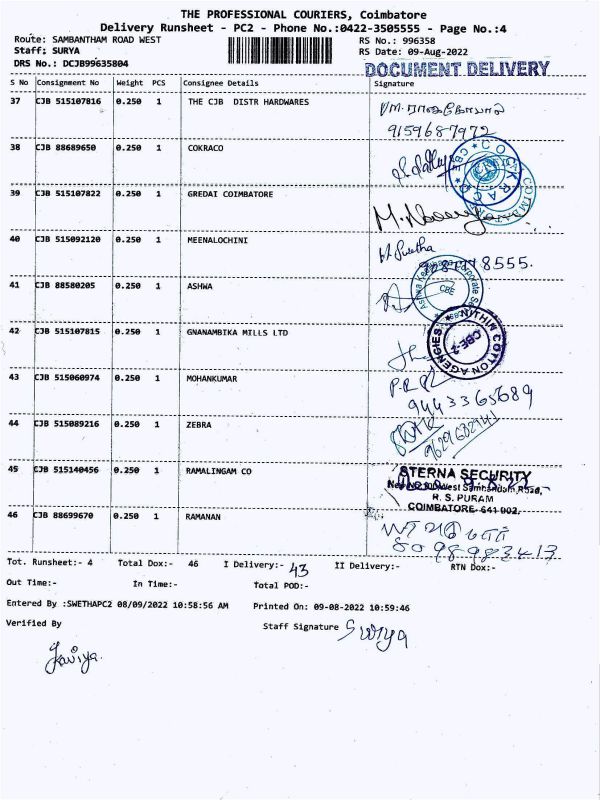 THE PROFESSIONAL COURIERS, Coimbatore
Delivery Runsheet - PC2 - Phone No.:0422-3505555 - Page No.:4
Route: SAMBANTHAM ROAD WEST RS No.: 996358
Staff: SURYA RS Date: 09-Aug-2022
DRS No.: DCJB99635804 DOCUMENT DELIVERY
S No Consignment No Weight PCS Consignee Details Signature
37 CJB 515107816 0.250 1 THE CJB DISTR HARDWARES
9159687972
38 CJB 88689650 0.250 1 COKRACO
COKRACO CBE
39 CJB 515107822 0.250 1 GREDAI COIMBATORE
40 CJB 515092120 0.250 1 MEENALOCHINI
Swetha
8555.
41 CJB 88580205 0.250 1 ASHWA
CBE
42 CJB 515107815 0.250 1 GNANAMBIKA MILLS LTD
NITHIN COTTON AGENCIES CBE-2
43 CJB 515060974 0.250 1 MOHANKUMAR
9443365689
44 CJB 515089216 0.250 1 ZEBRA
45 CJB 515140456 0.250 1 RAMALINGAM CO
STERNA SECURITY
R. S. PURAM
COIMBATORE- 641 002.
46 CJB 88699670 0.250 1 RAMANAN
8098983413
Tot. Runsheet:- 4 Total Dox:- 46 I Delivery:- 43 II Delivery:- RTN Dox:-
Out Time:- In Time:- Total POD:-
Entered By :SWETHAPC2 08/09/2022 10:58:56 AM Printed On: 09-08-2022 10:59:46
Verified By Staff Signature Surya
Kaviya.